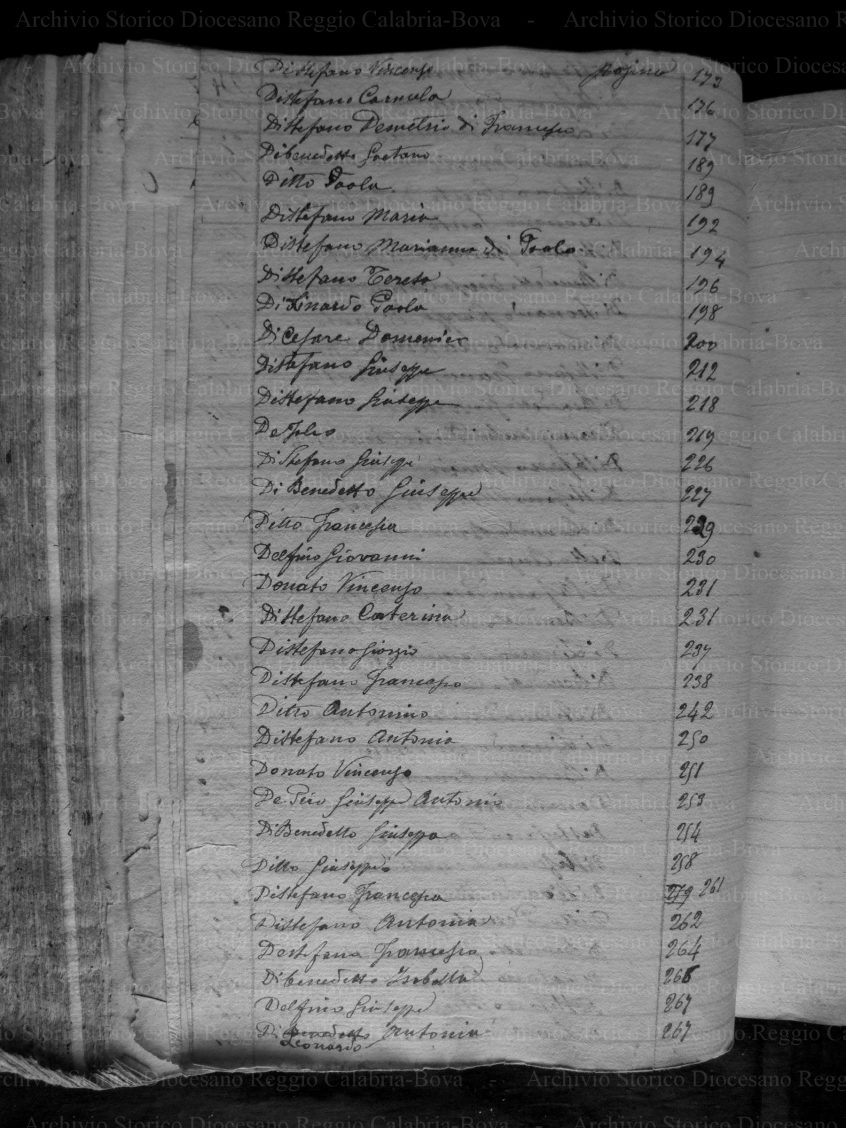 Archivio Storico Diocesano Reggio Calabria-Bova - Archivio Storico Diocesano Reggio
Distefano Vincenzo pagina 173
Distefano Carmela 176
Distefano Demetrio di Francesco 177
Dibenedetto Gaetano 189
Ditto Paola 189
Distefano Maria 192
Distefano Marianna di Paolo 194
Distefano Teresa 196
Paola 198
Di Cesare Domenico 200
Distefano Giuseppe 212
Distefano Giuseppe 218
219
Di Stefano Giuseppe 226
Di Benedetto Giuseppe 227
Ditto Francesca 229
Delfino Giovanni 230
Donato Vincenzo 231
Distefano Caterina 231
Distefano Giorgio 237
Distefano Francesco 238
Ditto Antonino 242
Distefano Antonia 250
Donato Vincenzo 251
De Giuseppe Antonio 253
Di Benedetto Giuseppa 254
Ditto Giuseppe 258
Distefano Francesca 279 261
Distefano Antonia 262
Destefano Francesco 264
Dibenedetto Isabella 266
Delfino Giuseppe 267
Di Benedetto Antonia 267
Leonardo